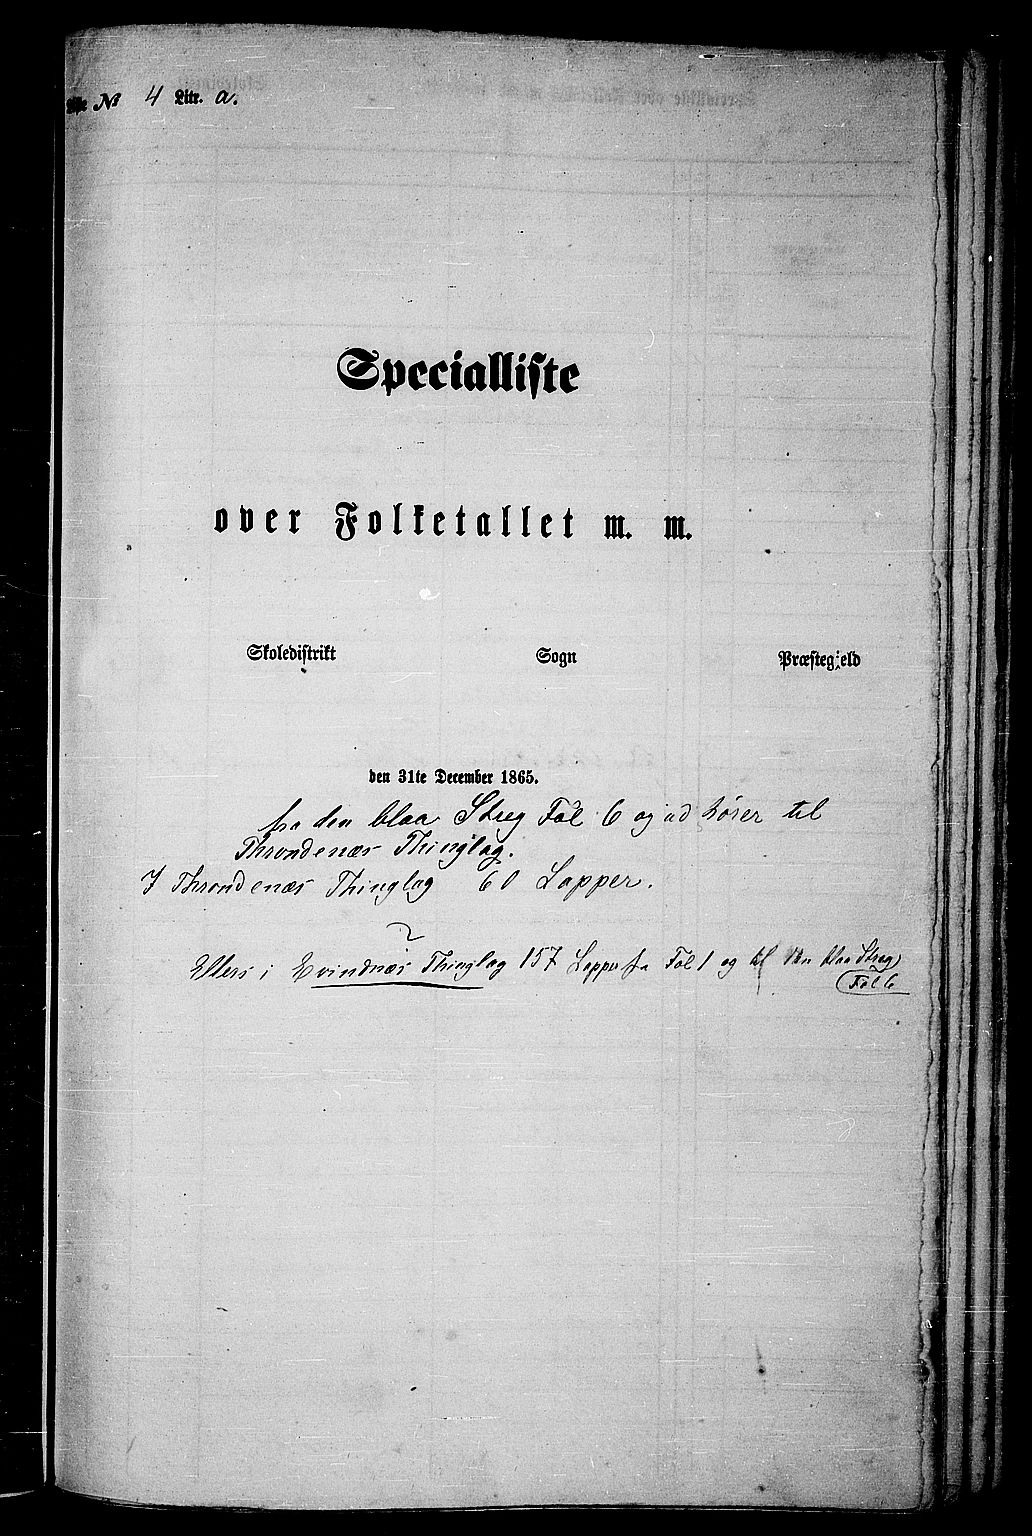 № 4 Litr. a.
Specialliste
over Folketallet m. m.
Skoledistrikt Sogn Præstegjeld
den 31te December 1865.
fra den blaa Streg Fol 6 og ud hører til
Throndenæs Thinglag.
I Throndenæs Thinglag 60 Lapper.
Ellers i Evindnæs Thinglag 157 Lapper fra Fol 1 og til den blaa Streg
Fol 6